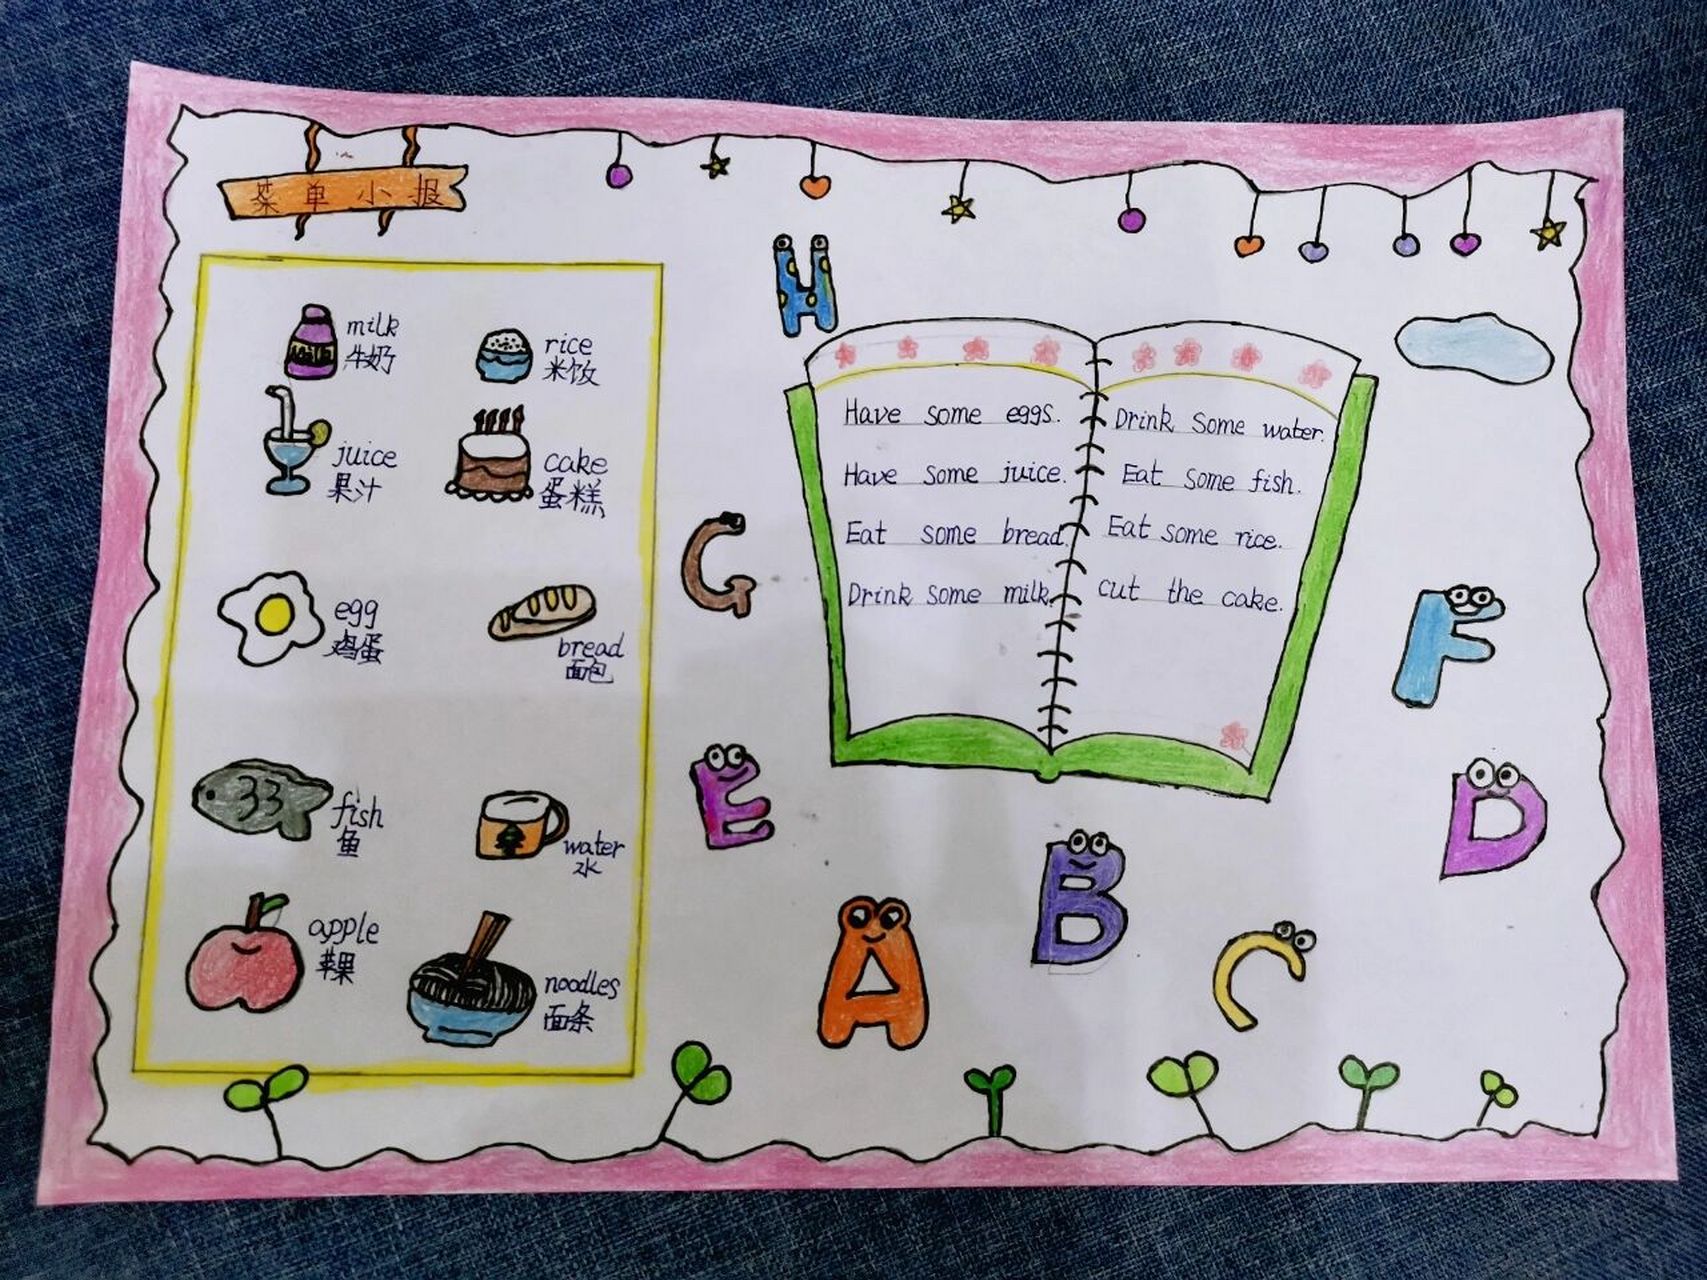 菜单小报
milk
牛奶
rice
米饭
juice
果汁
cake
蛋糕
egg
鸡蛋
bread
面包
fish
鱼
water
水
apple
苹果
noodles
面条
H
Have some eggs.
Have some juice.
Eat some bread.
Drink some milk.
Drink some water.
Eat some fish.
Eat some rice.
cut the cake.
G
F
E
D
B
A
C